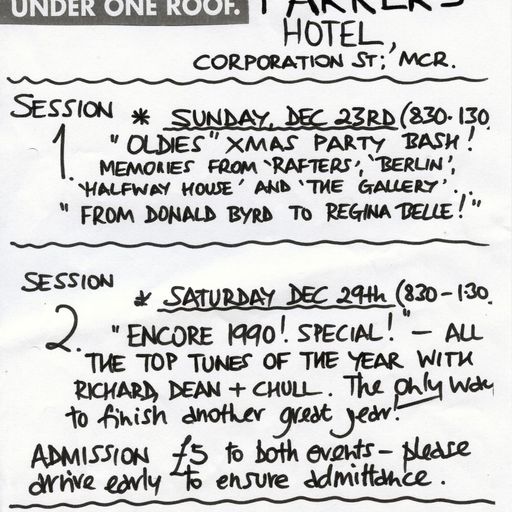 UNDER ONE ROOF. PARKERS
HOTEL,
CORPORATION ST; MCR.
SESSION * SUNDAY, DEC 23RD (830-130
1. "OLDIES" XMAS PARTY BASH!
MEMORIES FROM 'RAFTERS', 'BERLIN',
'HALFWAY HOUSE' AND 'THE GALLERY'...
"FROM DONALD BYRD TO REGINA BELLE!"
SESSION
* SATURDAY DEC 29th (830-130.
2. "ENCORE 1990! SPECIAL!" - ALL
THE TOP TUNES OF THE YEAR WITH
RICHARD, DEAN + CHULL. The only way
to finish another great year!
ADMISSION £5 to both events - please
arrive early to ensure admittance.